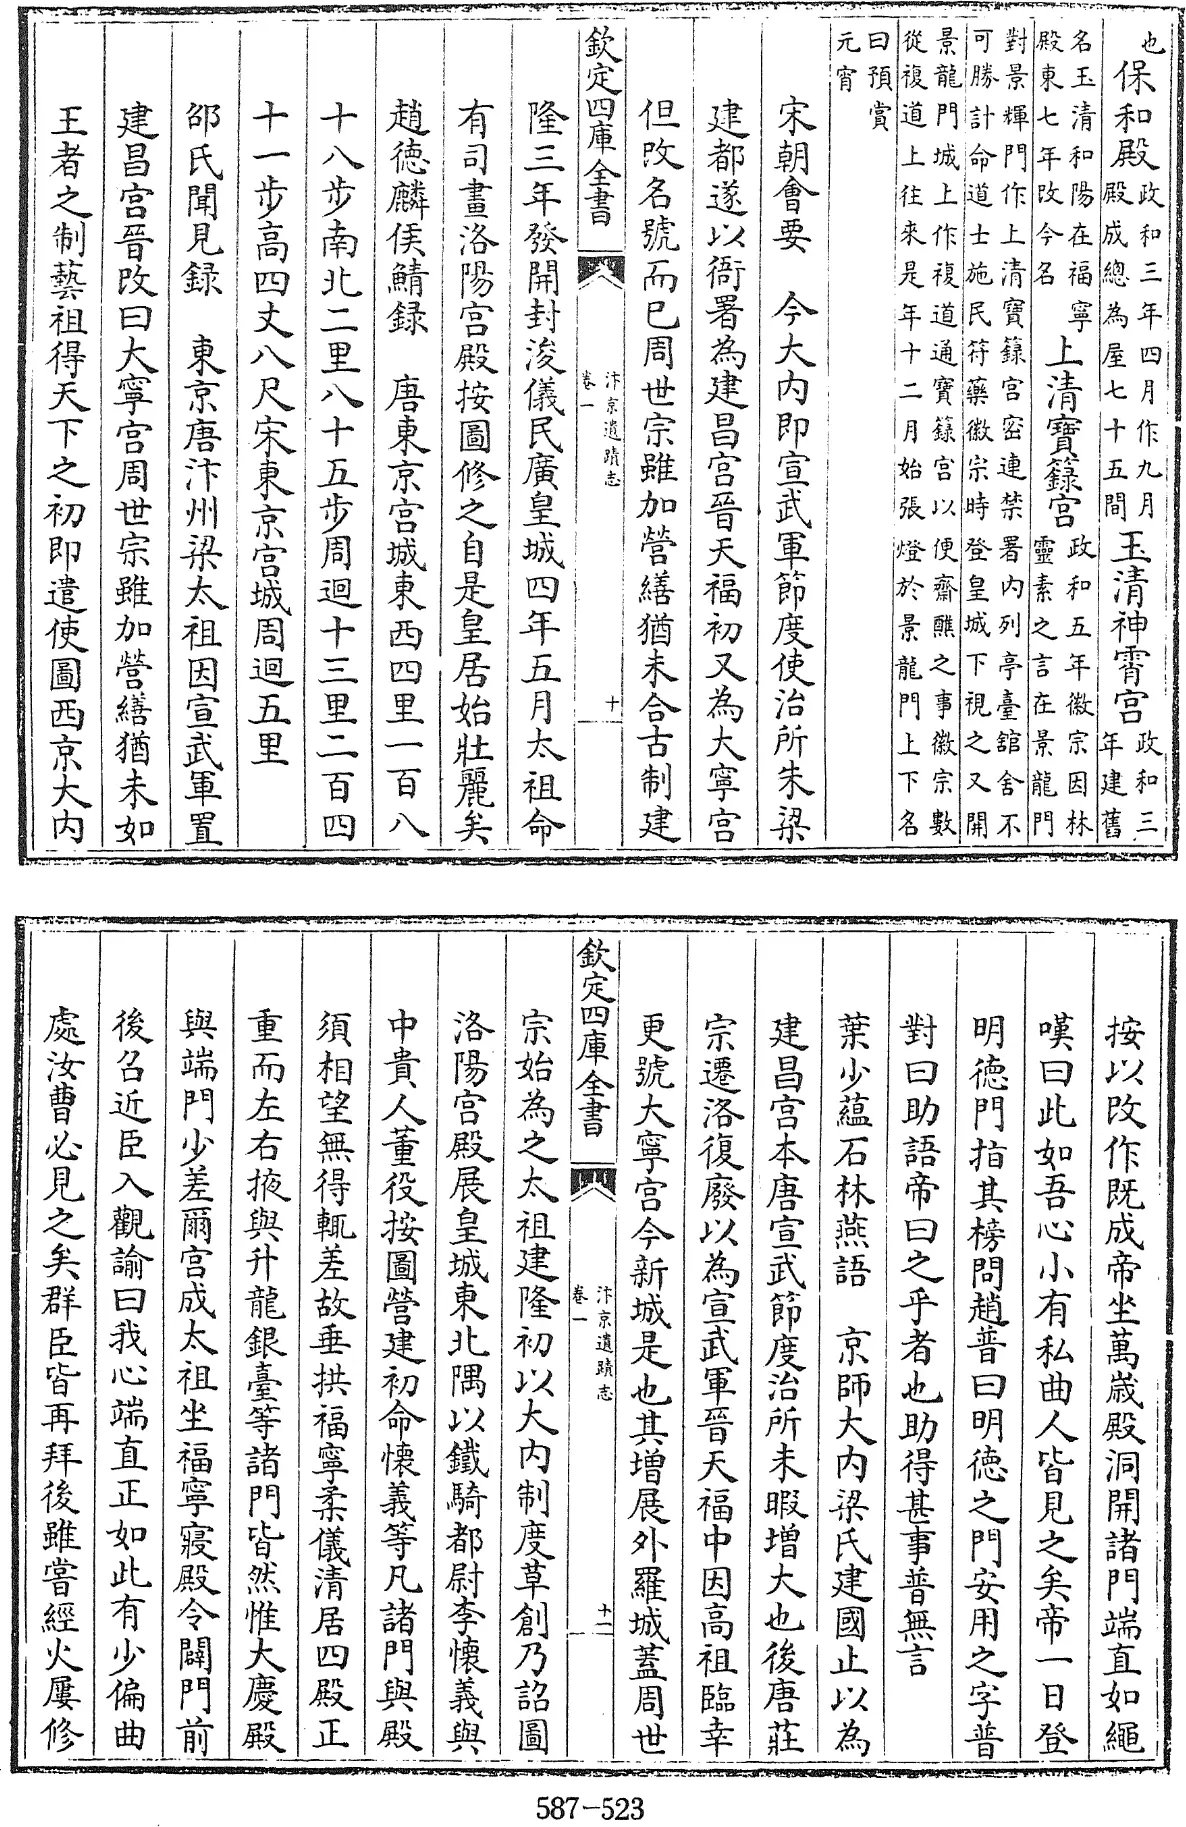 也保和殿政和三年四月作九月殿成總為屋七十五間玉清神霄宮政和三年建舊
名玉清和陽在福寧殿東七年改今名上清寶籙宮政和五年徽宗因林靈素之言在景龍門
對景輝門作上清寶籙宮密連禁署內列亭臺舘舍不
可勝計命道士施民符藥徽宗時登皇城下視之又開
景龍門城上作複道通寶籙宮以便齋醮之事徽宗數
從複道上往來是年十二月始張燈於景龍門上下名
曰預賞
元宵
宋朝會要　今大内即宣武軍節度使治所朱梁
建都遂以衙署為建昌宫晉天福初又為大寧宫
但改名號而已周世宗雖加營繕猶未合古制建
欽定四庫全書
汴京遺蹟志
卷一
十
隆三年發開封浚儀民廣皇城四年五月太祖命
有司畫洛陽宫殿按圖修之自是皇居始壯麗矣
趙德麟侯鯖録　唐東京宫城東西四里一百八
十八步南北二里八十五步周迴十三里二百四
十一步高四丈八尺宋東京宫城周迴五里
邵氏聞見録　東京唐汴州梁太祖因宣武軍置
建昌宫晉改曰大寧宫周世宗雖加營繕猶未如
王者之制藝祖得天下之初即遣使圖西京大内
按以改作既成帝坐萬歲殿洞開諸門端直如繩
嘆曰此如吾心小有私曲人皆見之矣帝一日登
明德門指其榜問趙普曰明德之門安用之字普
對曰助語帝曰之乎者也助得甚事普無言
葉少藴石林燕語　京師大内梁氏建國止以為
建昌宫本唐宣武節度治所未暇增大也後唐莊
宗遷洛復廢以為宣武軍晉天福中因高祖臨幸
更號大寧宫今新城是也其增展外羅城蓋周世
欽定四庫全書
汴京遺蹟志
卷一
十一
宗始為之太祖建隆初以大内制度草創乃詔圖
洛陽宫殿展皇城東北隅以鐵騎都尉李懷義與
中貴人董役按圖營建初命懷義等凡諸門與殿
須相望無得輒差故垂拱福寧柔儀清居四殿正
重而左右掖與升龍銀臺等諸門皆然惟大慶殿
與端門少差爾宫成太祖坐福寧寢殿令闢門前
後召近臣入觀諭曰我心端直正如此有少偏曲
處汝曹必見之矣群臣皆再拜後雖嘗經火屢修
587-523